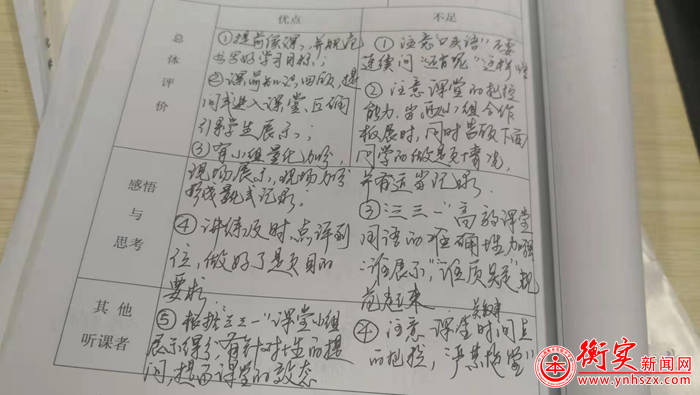 优点 不足
总体评价
①提前候课,并规范
书写好学习目标;
②课前知识回顾,提
问式进入课堂,正确
引导学生展示;
③有小组量化加分,
现场展示,现场加分
形成量式记录.
④讲练及时、点评到
位,做好了题目的
要求.
⑤根据"三三一"课堂小组
展示得分,有针对性的提
问,提高课堂的效态
①注意"口头语"不要
连续问"还有呢"这样
②注意课堂的把控
能力.当两小组合作
板展时,同时兼顾下面
同学的做题情况,
并有适当记录.
③三三一"高效课堂
用语的准确性加强
"谁展示","谁质疑"规
范起来
④注意课堂关键时间点
的把控,"严禁拖堂"
感悟
与
思考
其他
听课者
衡实新闻网
www.ynhszx.com